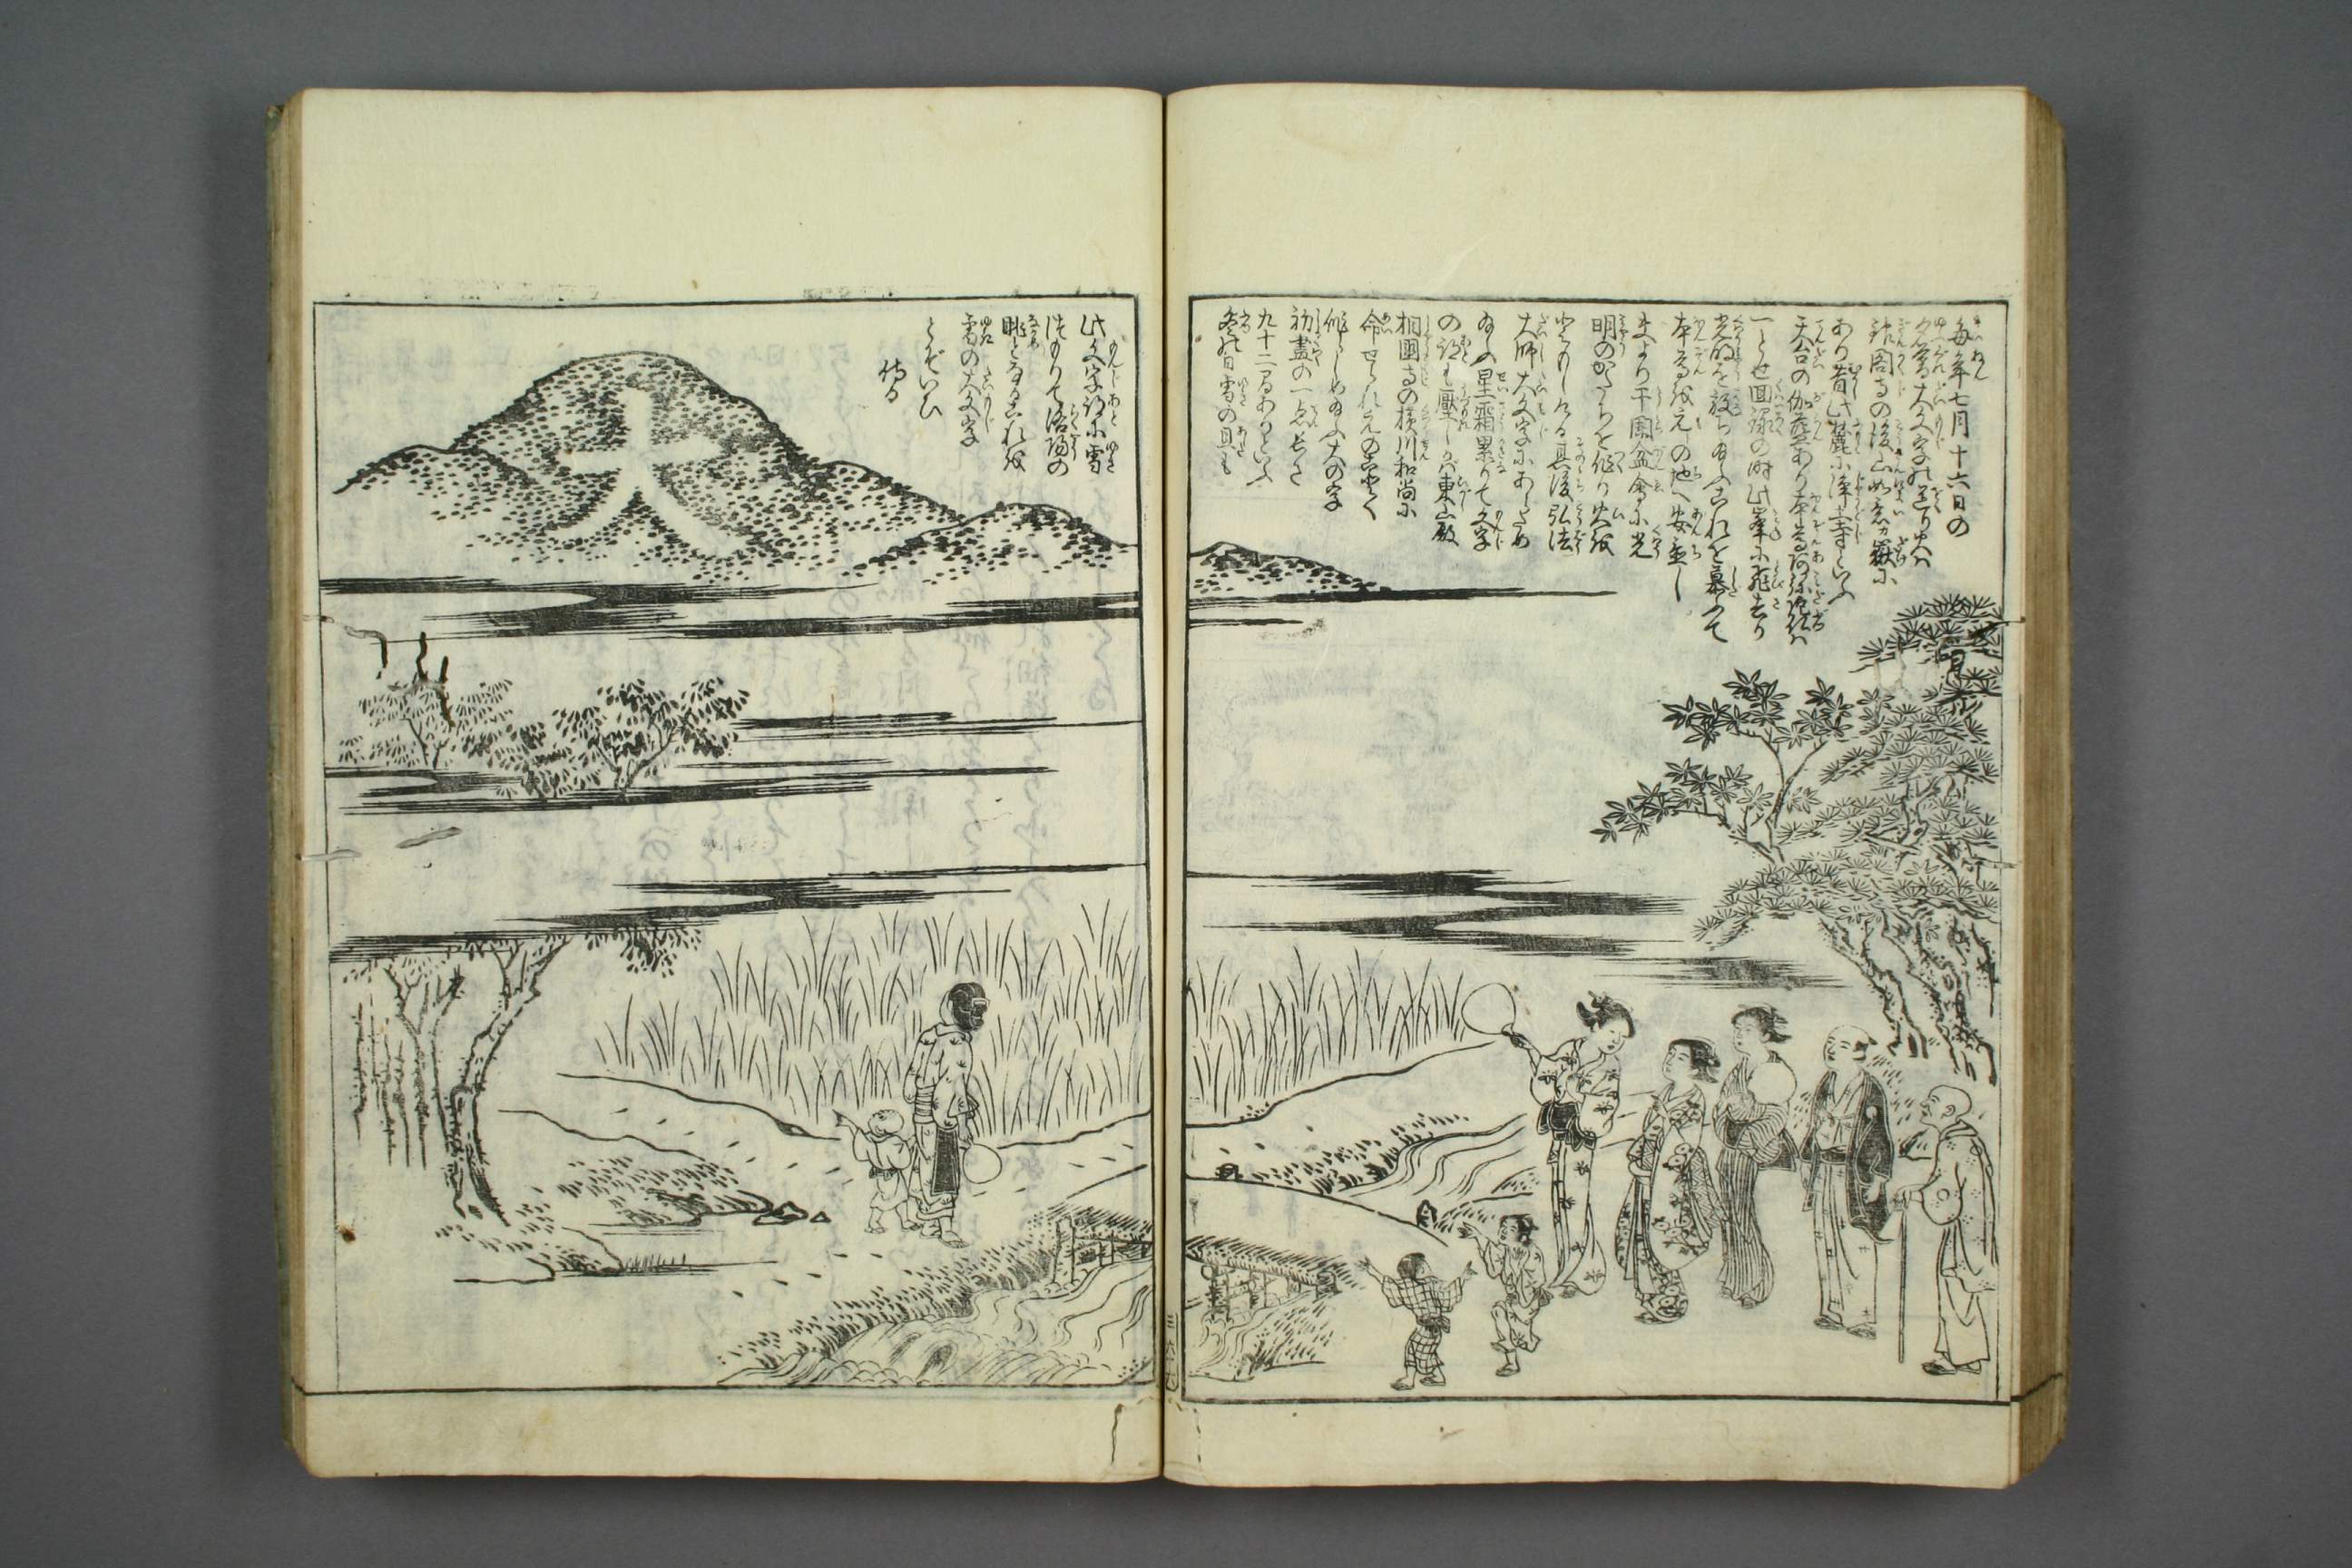 毎年七月十六日の
夕暮大文字の送り火は
銀閣寺の後山如意ヶ嶽に
あり昔此麓に浄土寺といふ
天台の伽藍あり本尊阿弥陀仏は
一とせ回禄の時此峯に飛去り
光明を放ち給ふこれを慕ふて
本尊を元の地へ安置し
夫より于闐盆会に光
明のかたちを作り火を
ともしける其後弘法
大師大文字にあらため
給ふ星霜累りて文字
の跡も壓しが東山殿
相国寺の横川和尚に
命せられ元のごとく
作らしめ給ふ大の字
初画の一点長さ
九十二間ありといふ
冬の日雪の旦も
此文字跡に雪
つもりて洛陽の
眺となるこれを
雪の大文字
とぞいひ
侍る